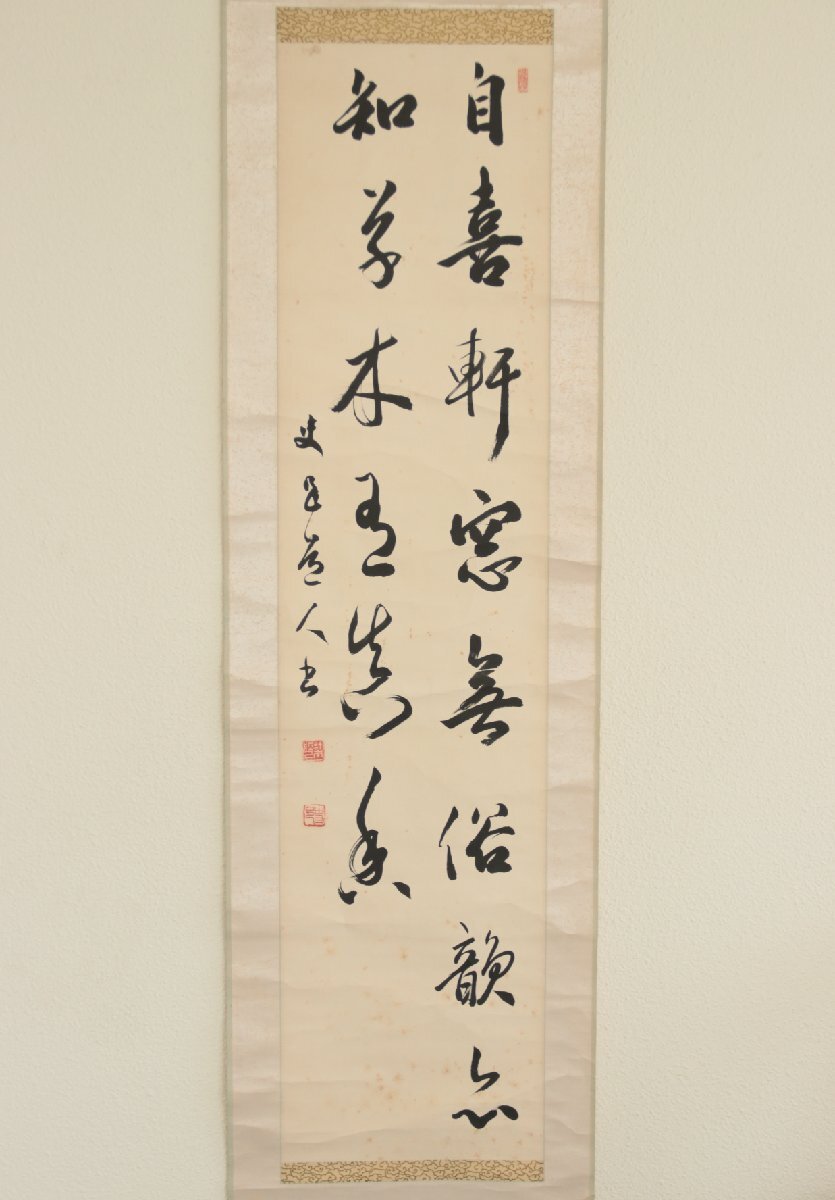 自喜軒窓無俗韻亦
知草木有真香
道人書